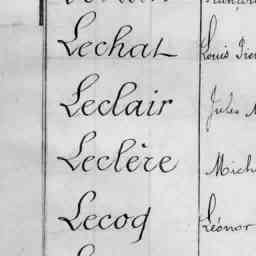 Lechat Louis
Leclair Jules
Leclère Mich
Lecoq Léonor